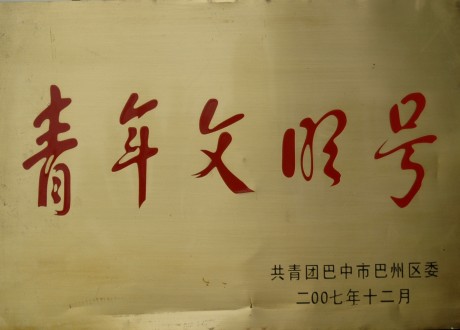 青年文明号
共青团巴中市巴州区委
二00七年十二月